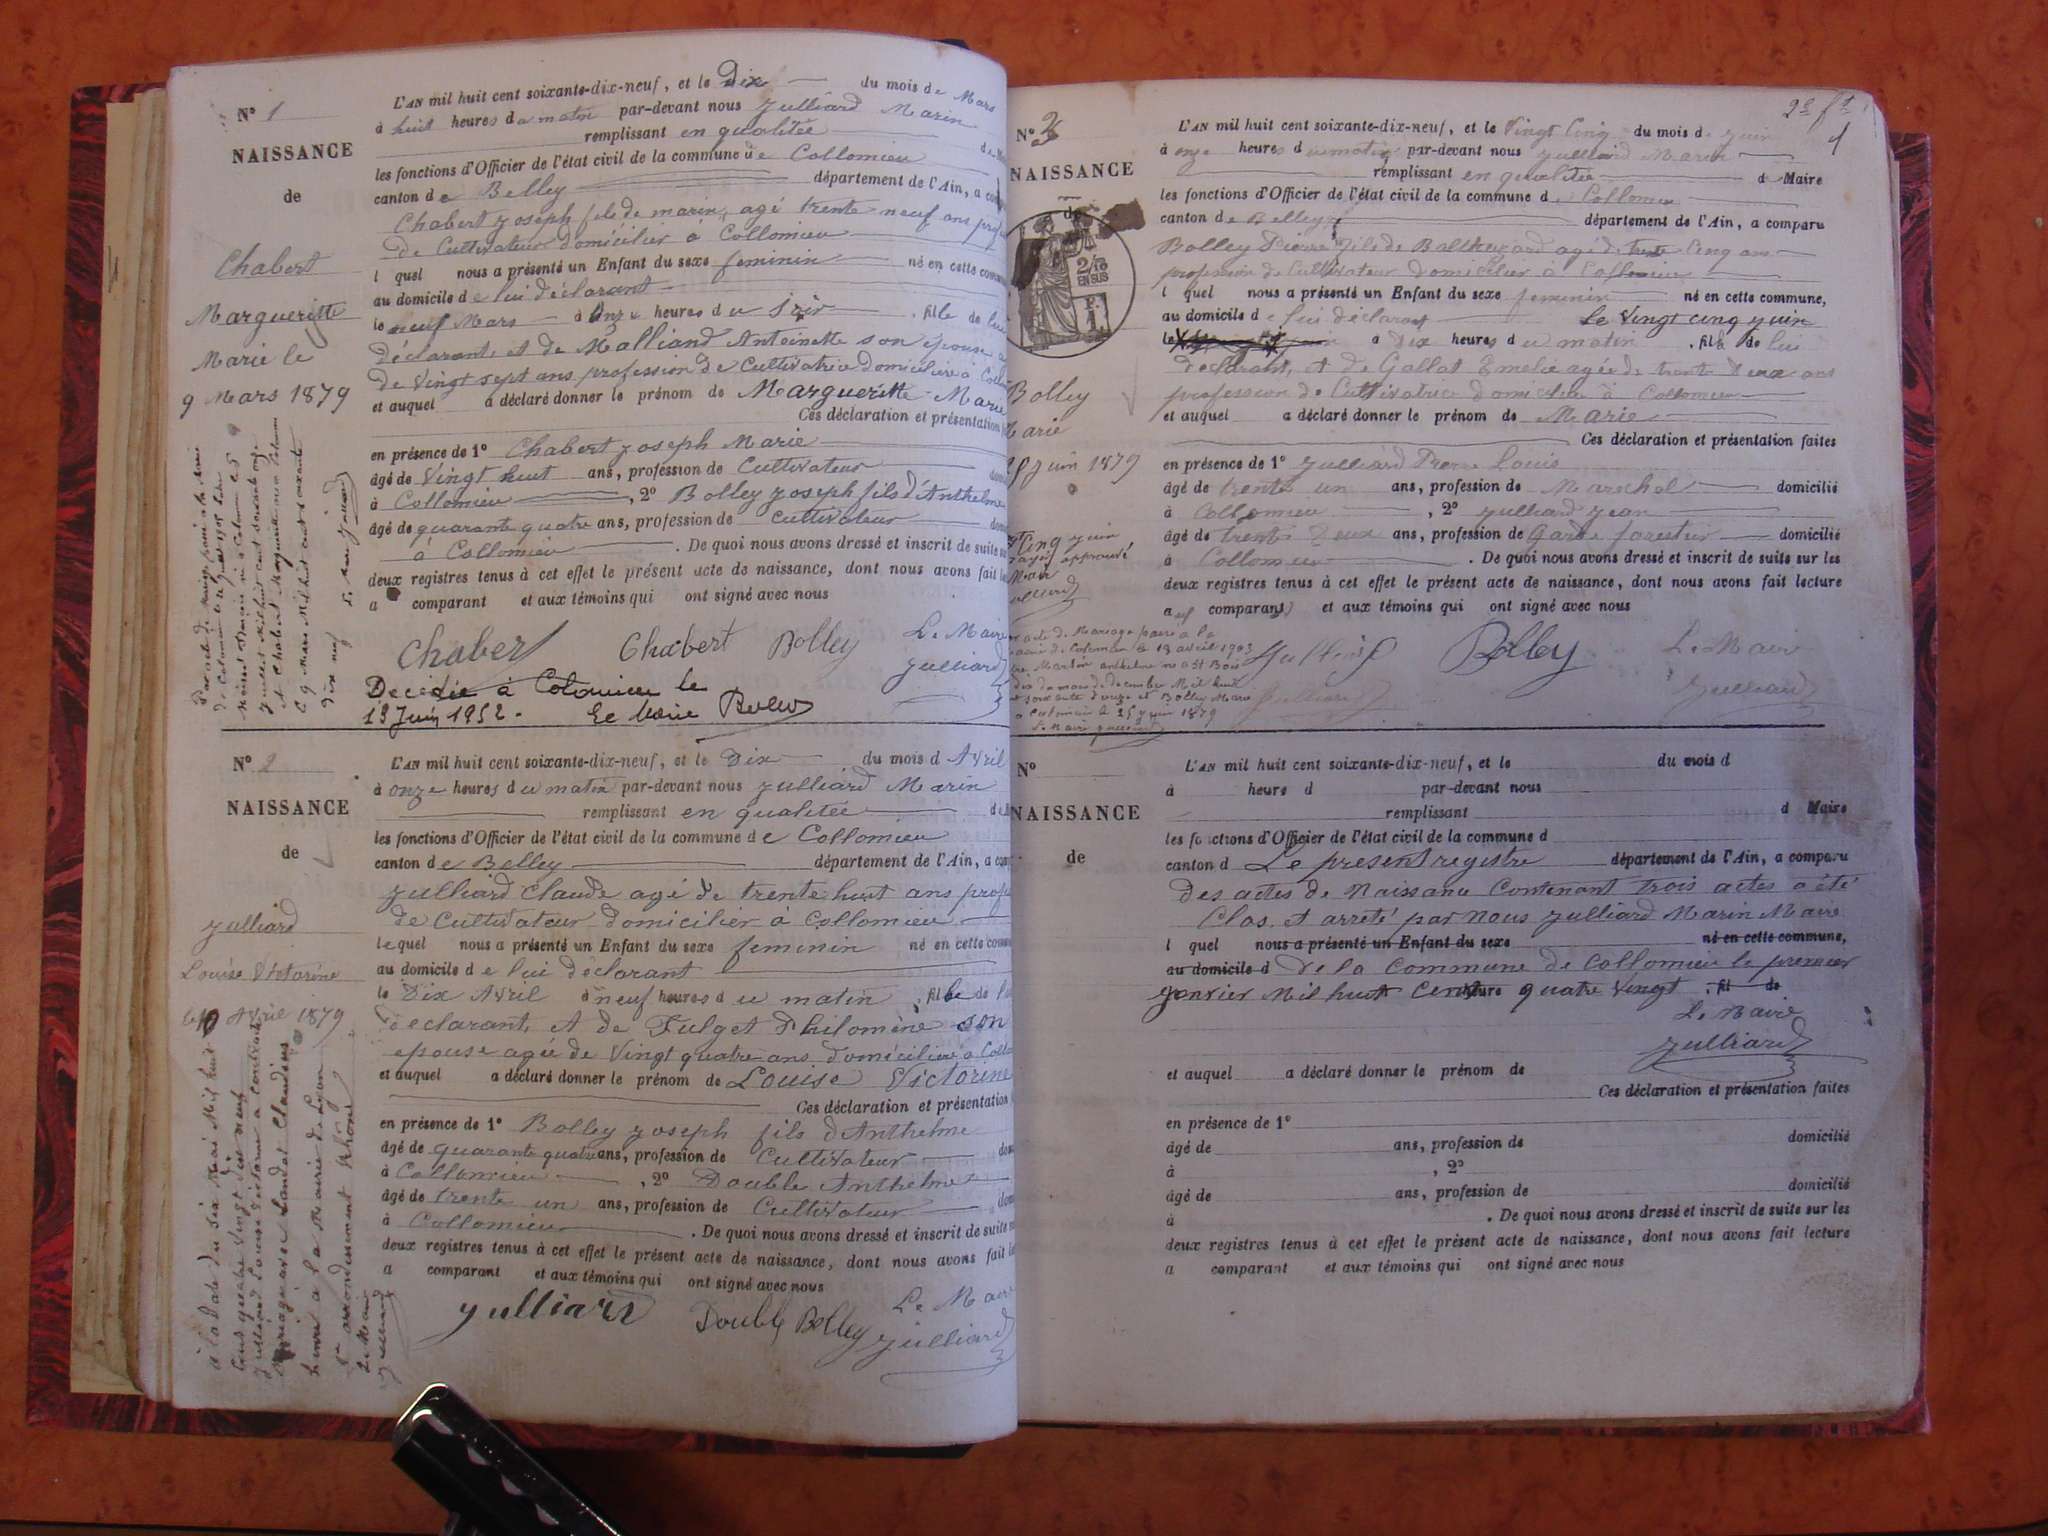 N° 1
NAISSANCE
de
Chabert
Margueritte
Marie le
9 Mars 1879
L'AN mil huit cent soixante-dix-neuf, et le Dix du mois de Mars
à huit heures du matin par-devant nous Julliard Marin
remplissant en qualitée
les fonctions d'Officier de l'état civil de la commune de Collomieu
canton de Belley département de l'Ain, a
Chabert Joseph fils de marin, agé trente neuf ans
de Cultivateur domicilier à Collomieu
l quel nous a présenté un Enfant du sexe feminin né en cette
au domicile de lui déclarant
le neuf Mars à Onze heures du soir , fille de lui
déclarant, et de Malliand Antoinette son epouse
de Vingt sept ans profession de Cultivatrice domicilière à
et auquel a déclaré donner le prénom de Margueritte Marie
Ces déclaration et présentation
en présence de 1° Chabert Joseph Marie
âgé de Vingt huit ans, profession de Cultivateur
à Collomieu , 2° Bolley Joseph fils d'Anthelme
âgé de quarante quatre ans, profession de Cultivateur
à Collomieu . De quoi nous avons dressé et inscrit de suite sur
deux registres tenus à cet effet le présent acte de naissance, dont nous avons fait
a comparant et aux témoins qui ont signé avec nous
Chabert Chabert Bolley Le Maire
Julliard
Decédée à Colomieu le
13 Juin 1952. Le Maire
N° 2
NAISSANCE
de
Julliard
Louise Victorine
le 10 Avril 1879
L'AN mil huit cent soixante-dix-neuf, et le Dix du mois d Avril
à onze heures du matin par-devant nous Julliard Marin
remplissant en qualitée
les fonctions d'Officier de l'état civil de la commune de Collomieu
canton de Belley département de l'Ain, a
Julliard Claude agé de trente huit ans
de Cultivateur domicilier à Collomieu
lequel nous a présenté un Enfant du sexe feminin né en cette
au domicile de lui déclarant
le Dix Avril à neuf heures du matin , fille de
déclarant, et de Fulget Philomène son
epouse agée de Vingt quatre ans domicilière à
et auquel a déclaré donner le prénom de Louise Victorine
Ces déclaration et présentation
en présence de 1° Bolley Joseph fils d'Anthelme
âgé de quarante quatre ans, profession de Cultivateur
à Collomieu , 2° Double Anthelme
âgé de trente un ans, profession de Cultivateur
à Collomieu . De quoi nous avons dressé et inscrit de suite
deux registres tenus à cet effet le présent acte de naissance, dont nous avons fait
a comparant et aux témoins qui ont signé avec nous
Julliard Double Bolley Le Maire
Julliard
N° 3
NAISSANCE
2/10
EN SUS
Bolley
Marie
Juin 1879
L'AN mil huit cent soixante-dix-neuf, et le Vingt Cinq du mois de Juin
à onze heures du matin par-devant nous Julliard Marin
remplissant en qualitée d Maire
les fonctions d'Officier de l'état civil de la commune de Collomieu
canton de Belley département de l'Ain, a comparu
Bolley Pierre fils de Balthazard agé de trente Cinq ans
profession de Cultivateur domicilier à Collomieu
l quel nous a présenté un Enfant du sexe feminin né en cette commune,
au domicile de lui déclarant le Vingt cinq juin
le à Dix heures du matin , fille de lui
déclarant, et de Gallat Emelie agée de trente Deux ans
profession de Cultivatrice domicilière à Collomieu
et auquel a déclaré donner le prénom de Marie
Ces déclaration et présentation faites
en présence de 1° Julliard Pierre Louis
âgé de trente un ans, profession de Maréchal domicilié
à Collomieu , 2° Julliard Jean
âgé de trente Deux ans, profession de Garde forestier domicilié
à Collomieu . De quoi nous avons dressé et inscrit de suite sur les
deux registres tenus à cet effet le présent acte de naissance, dont nous avons fait lecture
a comparant et aux témoins qui ont signé avec nous
Bolley Le Maire
Julliard Julliard
acte de Mariage passé à la
mairie de Colomieu le 18 avril 1903
N°
NAISSANCE
de
L'AN mil huit cent soixante-dix-neuf, et le du mois d
à heure d par-devant nous
remplissant d Maire
les fonctions d'Officier de l'état civil de la commune d
canton d Le present registre département de l'Ain, a comparu
Des actes de Naissance Contenant trois actes a été
Clos et arreté par nous Julliard Marin Maire
l quel nous a présenté un Enfant du sexe né en cette commune,
au domicile d de la Commune de Collomieu le premier
Janvier Mil huit Cent heure quatre Vingt , fil de
Le Maire
Julliard
et auquel a déclaré donner le prénom de
Ces déclaration et présentation faites
en présence de 1°
âgé de ans, profession de domicilié
à , 2°
âgé de ans, profession de domicilié
à . De quoi nous avons dressé et inscrit de suite sur les
deux registres tenus à cet effet le présent acte de naissance, dont nous avons fait lecture
a comparant et aux témoins qui ont signé avec nous